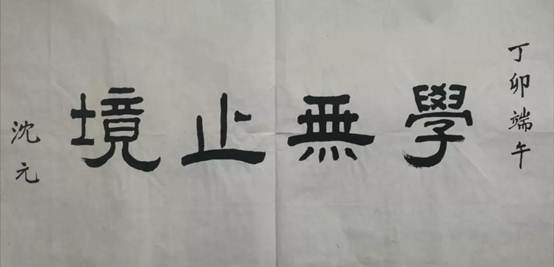 丁卯端午
學無止境
沈元